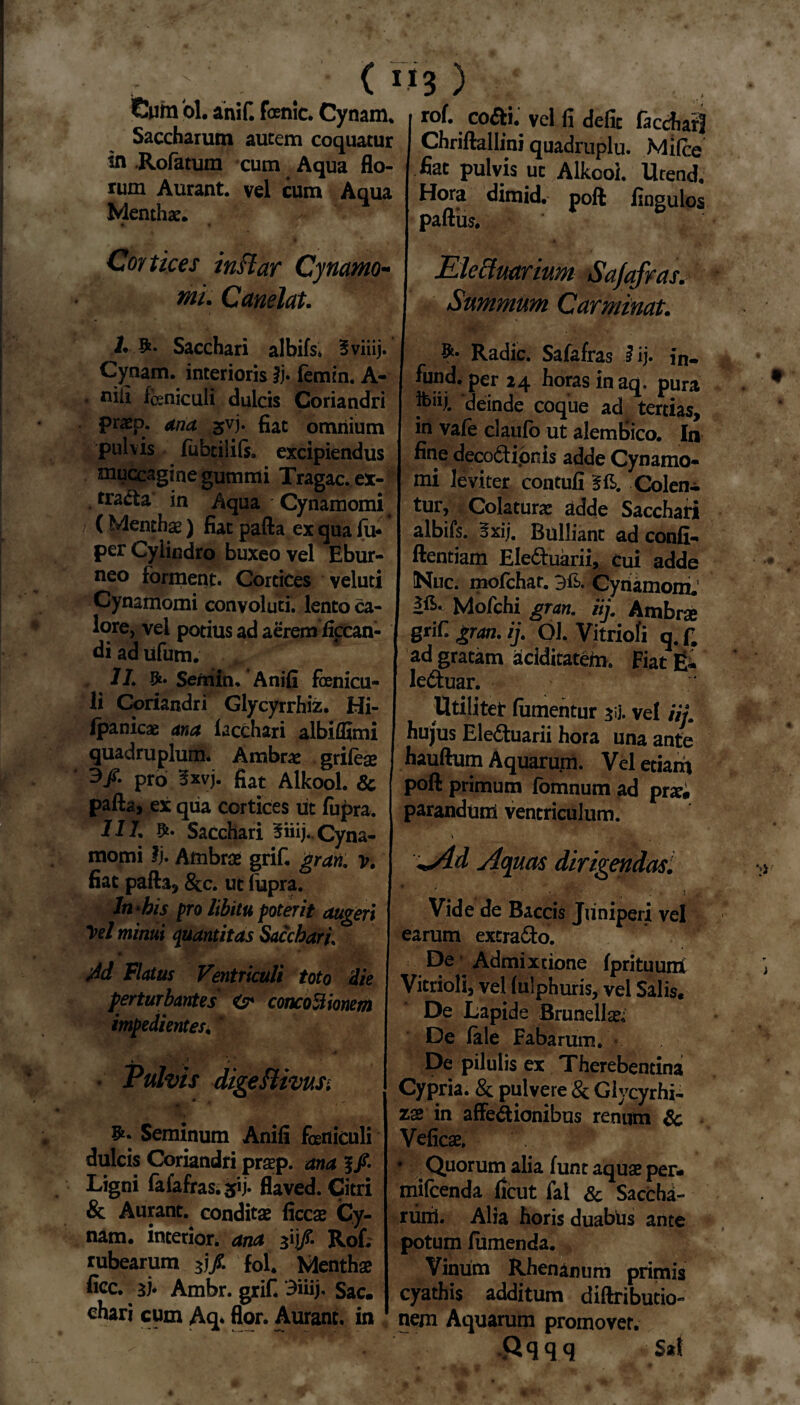 ( 113 )
Cum ol. anif. fœnic. Cynam.
Saccharum autem coquatur
in Rofatum cum Aqua flo-
rum Aurant. vel cum Aqua
Menthæ.
Cortices inſtar Cynamo-
mi. Canelat.
I. ℞. Sacchari albifs. ℥viiij.
Cynam. interioris ℥j. ſemin. A-
niſi fœniculi dulcis Coriandri
præp. ana ʒvj. fiat omnium
pulvis ſubtiliſs. excipiendus
muccagine gummi Tragac. ex-
tracta in Aqua Cynamomi
( Menthæ ) fiat paſta ex qua ſu-
per Cylindro buxeo vel Ebur-
neo forment. Cortices veluti
Cynamomi convoluti. lento ca-
lore, vel potius ad aërem ſiccan-
di ad uſum.
II. ℞. Semin. Aniſi fœnicu-
li Coriandri Glycyrrhiz. Hi-
ſpanicæ ana ſacchari albiſſimi
quadruplum. Ambræ griſeæ
℈ſſ. pro ℥xvj. fiat Alkool. &
paſta, ex qua cortices ut ſupra.
III. ℞. Sacchari ℥iiij. Cyna-
momi ℥j. Ambræ griſ. gran. v.
fiat paſta, &c. ut ſupra.
In his pro libitu poterit augeri
vel minui quantitas Sacchari.
Ad Flatus Ventriculi toto die
perturbantes & concoctionem
impedientes.
Pulvis digeſtivus.
℞. Seminum Aniſi fœniculi
dulcis Coriandri præp. ana ℥ſſ.
Ligni ſaſafras. ʒij. flaved. Citri
& Aurant. conditæ ſiccæ Cy-
nam. interior. ana ʒijſſ. Roſ.
rubearum ʒjſſ. fol. Menthæ
ſicc. ʒj. Ambr. griſ. ℈iiij. Sac.
chari cum Aq. flor. Aurant. in
roſ. cocti. vel ſi deſit ſacchari
Chriſtallini quadruplu. Miſce
fiat pulvis ut Alkool. Utend.
Hora dimid. poſt ſingulos
paſtus.
Electuarium Saſafras.
Summum Carminat.
℞. Radic. Saſafras ℥ij. in-
fund. per 24 horas in aq. pura
℔iij. deinde coque ad tertias,
in vaſe clauſo ut alembico. In
fine decoctionis adde Cynamo-
mi leviter contuſi ℥ß. Colen-
tur, Colaturæ adde Sacchari
albiſs. ℥xij. Bulliant ad conſi-
ſtentiam Electuarii, cui adde
Nuc. moſchat. ℈ß. Cynamom.
℥ß. Moſchi gran. iij. Ambræ
griſ. gran. ij. Ol. Vitrioli q. ſ.
ad gratam aciditatem. Fiat E-
lectuar.
Utiliter ſumentur ʒij. vel iij.
hujus Electuarii hora una ante
hauſtum Aquarum. Vel etiam
poſt primum ſomnum ad præ-
parandum ventriculum.
Ad Aquas dirigendas.
Vide de Baccis Juniperi vel
earum extracto.
De Admixtione ſprituum
Vitrioli, vel ſulphuris, vel Salis.
De Lapide Brunellæ.
De ſale Fabarum.
De pilulis ex Therebentina
Cypria. & pulvere & Glycyrhi-
zæ in affectionibus renum &
Veſicæ.
Quorum alia ſunt aquæ per-
miſcenda ſicut ſal & Saccha-
rum. Alia horis duabus ante
potum ſumenda.
Vinum Rhenanum primis
cyathis additum diſtributio-
nem Aquarum promovet.
Qqqq Sal